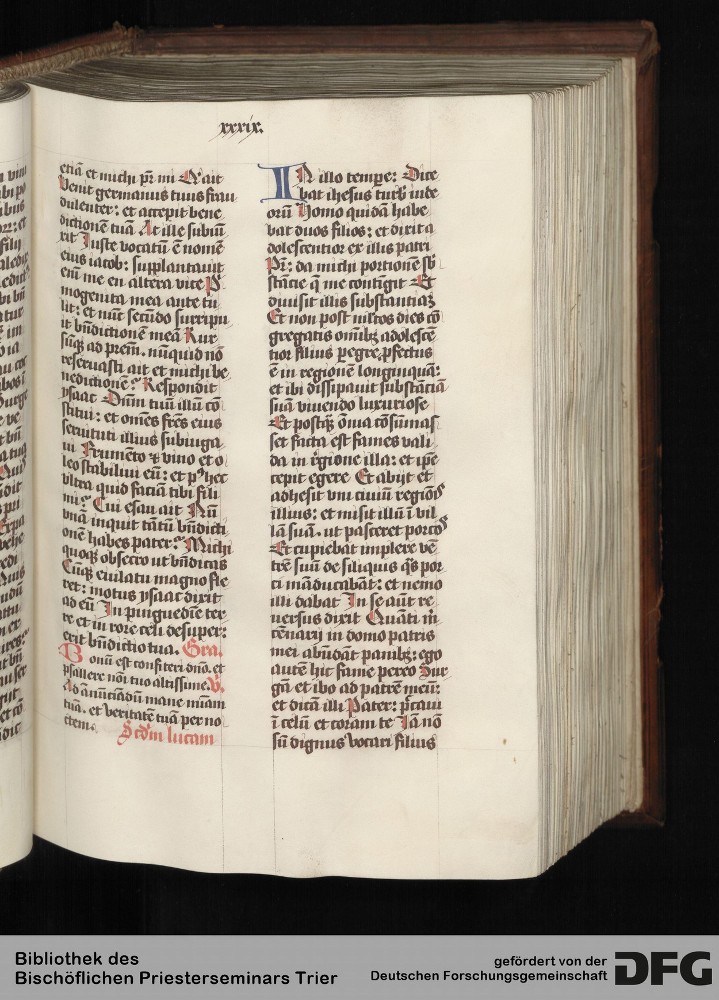 xxxix.
etiā et michi pr̄ mi Q̄ ait
Venit germanus tuus frau
dulenter: et accepit bene
dictionē tuā At ille subiū
xit Iuste vocatū ē nomē
eius iacob: supplantauit
em̄ me en altera vice P̄
mogenita mea ante tu
lit: et nūc secūdo surripu
it bn̄dictionē meā Rur
sūqȝ ad prēm. nūquid nō
reseruasti ait et michi be
nedictionē? Respondit
ysaac Dn̄m tuū illū cō
stitui: et om̄es frēs eius
seruituti illius subiuga
ui Frumēto et vino et o
leo stabiliui eū: et p9 hec
vltra quid faciā tibi fili
mi? Cui esau ait Nū
vnā inquit tātū bn̄dicti
onē habes pater? Michi
quoqȝ obsecro ut bn̄dicas
Cūqȝ eiulatu magno fle
ret: motus ysaac dixit
ad eū In pinguedīe ter
re et in rore celi desuper:
erit bn̄dictio tua. Gra.
Bonū est confiteri dn̄o. et
psallere noī tuo altissime. V.
Ad ānūciādū mane mīam
tuā. et veritatē tuā per no
ctem.
Scd̄m lucam
IN illo tempe: Dice
bat ihesus turb̄ iude
orū Homo quidā habe
bat duos filios: et dixit a
dolescentior ex illis patri
Pr̄: da michi portionē sb̄
stācie q̄ me contīgit Et
diuisit illis substantiaȝ
Et non post ml̄tos dies cō
gregatis om̄ibȝ adolescē
tior filius peregre pfectus
ē in regionē longinquā:
et ibi dissipauit substāciā
suā viuendo luxuriose
Et postqȝ om̄ia cōsūmas
set facta est fames vali
da in rēgione illa: et ip̄e
cepit egere Et abijt et
adhesit vni ciuiū regiōs
illius: et misit illū ī vil
lā suā. ut pasceret porcos
Et cupiebat implere vē
trē suū de siliquis qȝ por
ci māducabāt: et nemo
illi dabat In se aūt re
uersus dixit Quāti m̄
cēnarij in domo patris
mei abūdāt panibȝ: ego
autē hic fame pereo Sur
gā et ibo ad patrē meū:
et dicā illi Pater: pc̄caui
ī celū et coram te Iā nō
sū dignus vocari filius
Bibliothek des
Bischöflichen Priesterseminars Trier
gefördert von der
Deutschen Forschungsgemeinschaft
DFG